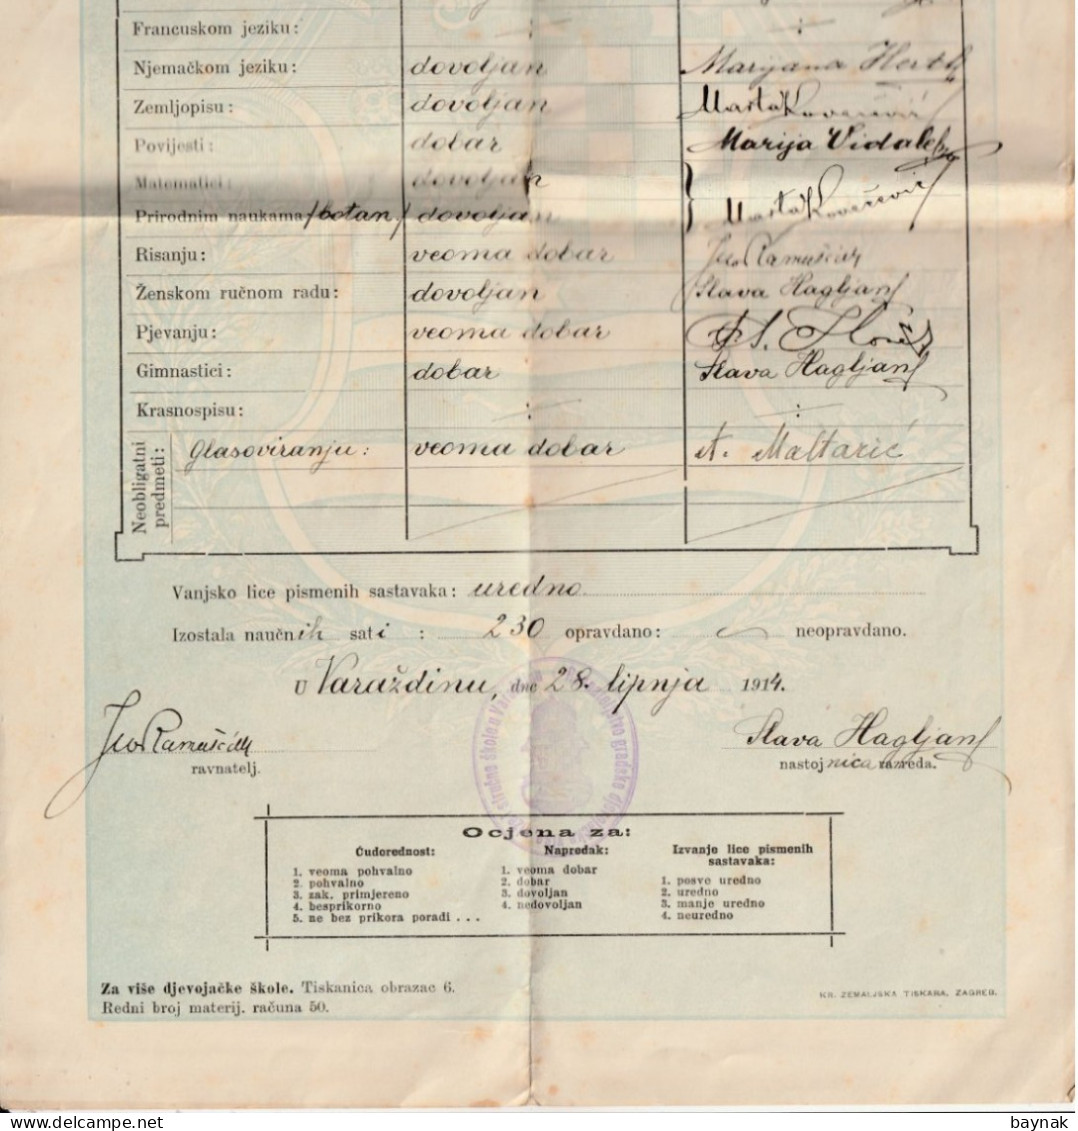 Francuskom jeziku: :
Njemačkom jeziku: dovoljan Marijana Herth
Zemljopisu: dovoljan Marta Kovačević
Povijesti: dobar Marija Vidale
Matematici: dovoljan
Prirodnim naukama /botan./ dovoljan Marta Kovačević
Risanju: veoma dobar
Ženskom ručnom radu: dovoljan Slava Hagljan
Pjevanju: veoma dobar
Gimnastici: dobar Slava Hagljan
Krasnospisu: : :
Neobligatni predmeti:
Glasoviranju: veoma dobar A. Maltarić
Vanjsko lice pismenih sastavaka: uredno
Izostala naučnih sati : 230 opravdano: neopravdano.
U Varaždinu, dne 28. lipnja 1914.
Slava Hagljan
ravnatelj. nastojnica razreda.
Ocjena za:
Ćudorednost: Napredak: Izvanje lice pismenih sastavaka:
1. veoma pohvalno 1. veoma dobar 1. posve uredno
2. pohvalno 2. dobar 2. uredno
3. zak. primjereno 3. dovoljan 3. manje uredno
4. besprikorno 4. nedovoljan 4. neuredno
5. ne bez prikora poradi . . .
Za više djevojačke škole. Tiskanica obrazac 6.
Redni broj materij. računa 50.
KR. ZEMALJSKA TISKARA, ZAGREB.
baynak